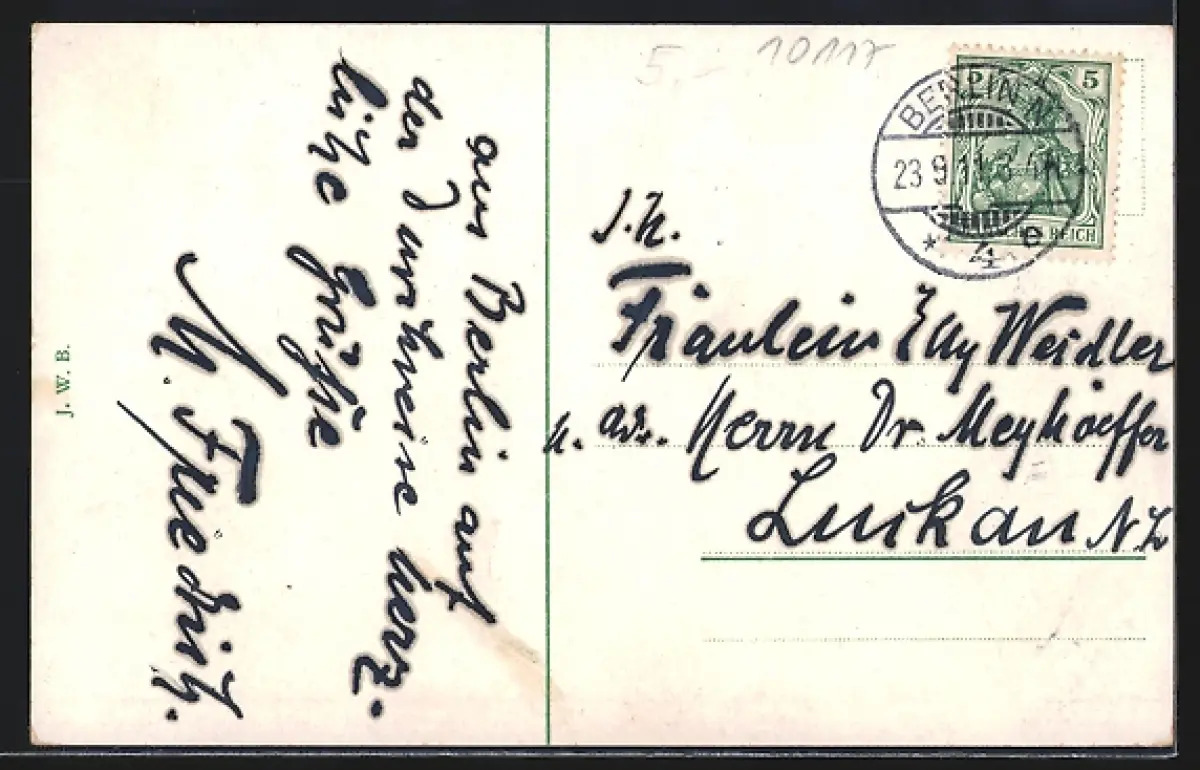 aus Berlin auf
der Durchreise herz-
liche Grüße
M. Friedrich.
J. W. B.
5.- 10117
BERLIN N.
23 9 11 3-4 N
* 4 e
5
DEUTSCHES REICH
Fräulein Elly Weidler
adr. Herrn Dr. Meyhoeffer
Luckau N. L.